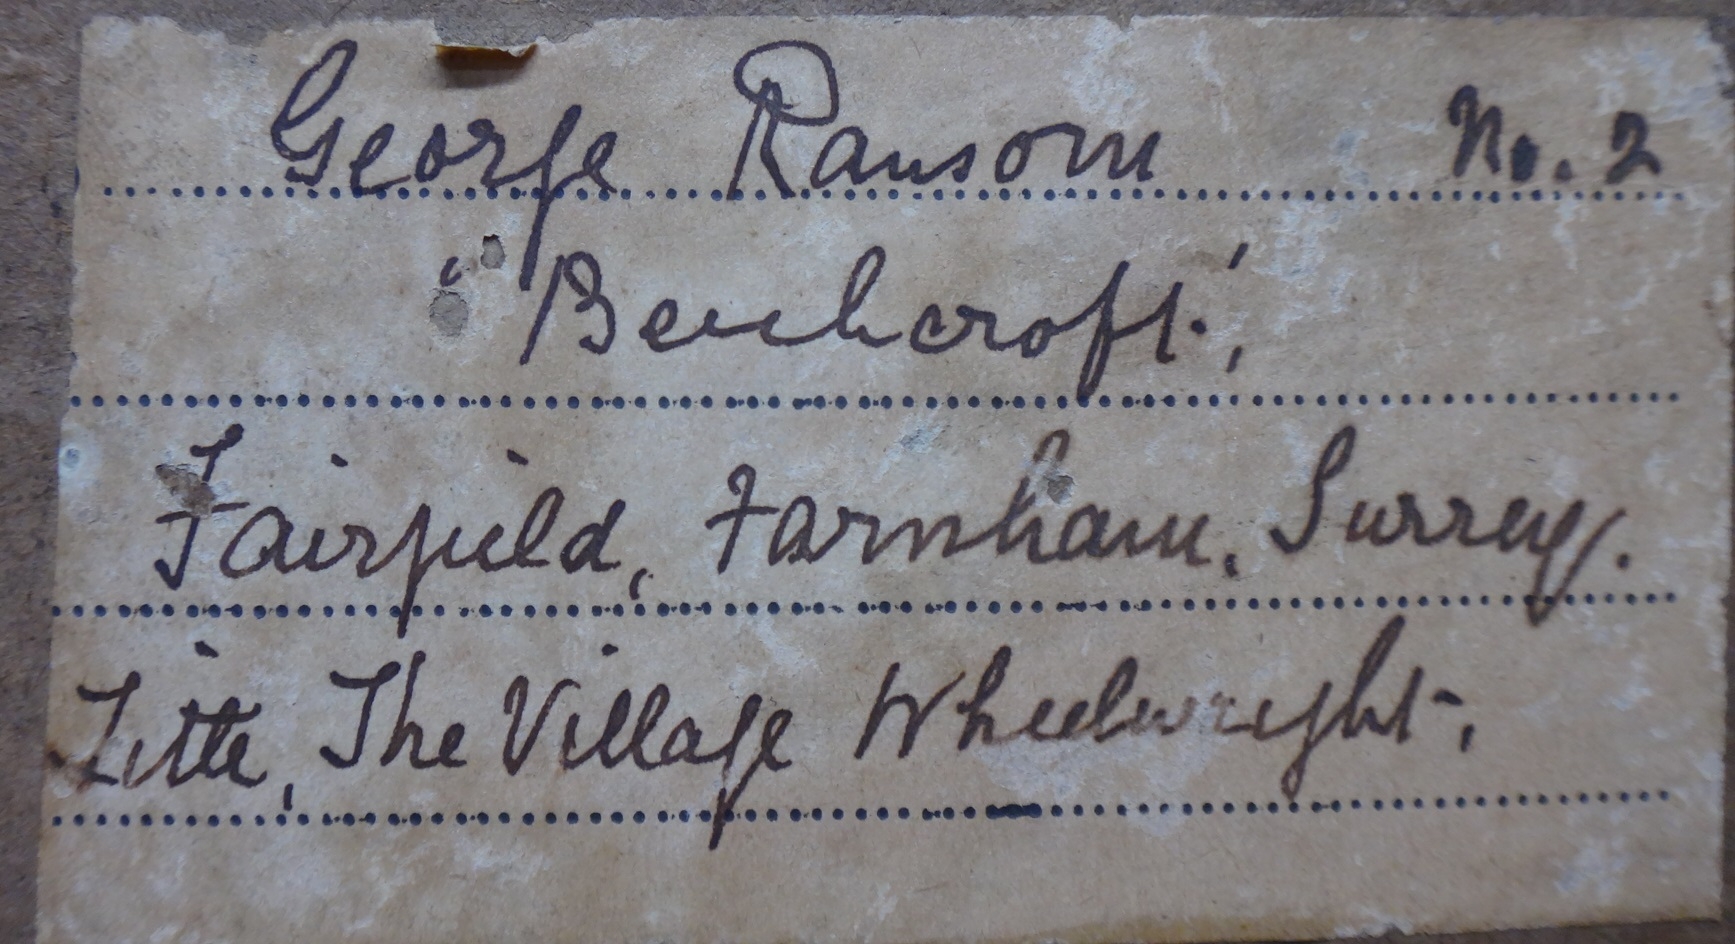 George Ransom No. 2
"Beechcroft",
Fairfield, Farnham, Surrey.
Title, The Village Wheelwright.